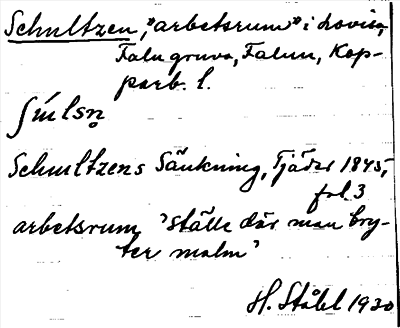 Schultzen, "arbetsrum" i Lovisa,
Falu gruva, Falun, Kop-
parb. l.
Schultzens Sänkning, Tjäder 1845,
fol. 3
arbetsrum 'ställe där man bry-
ter malm'
H. Ståhl 1930